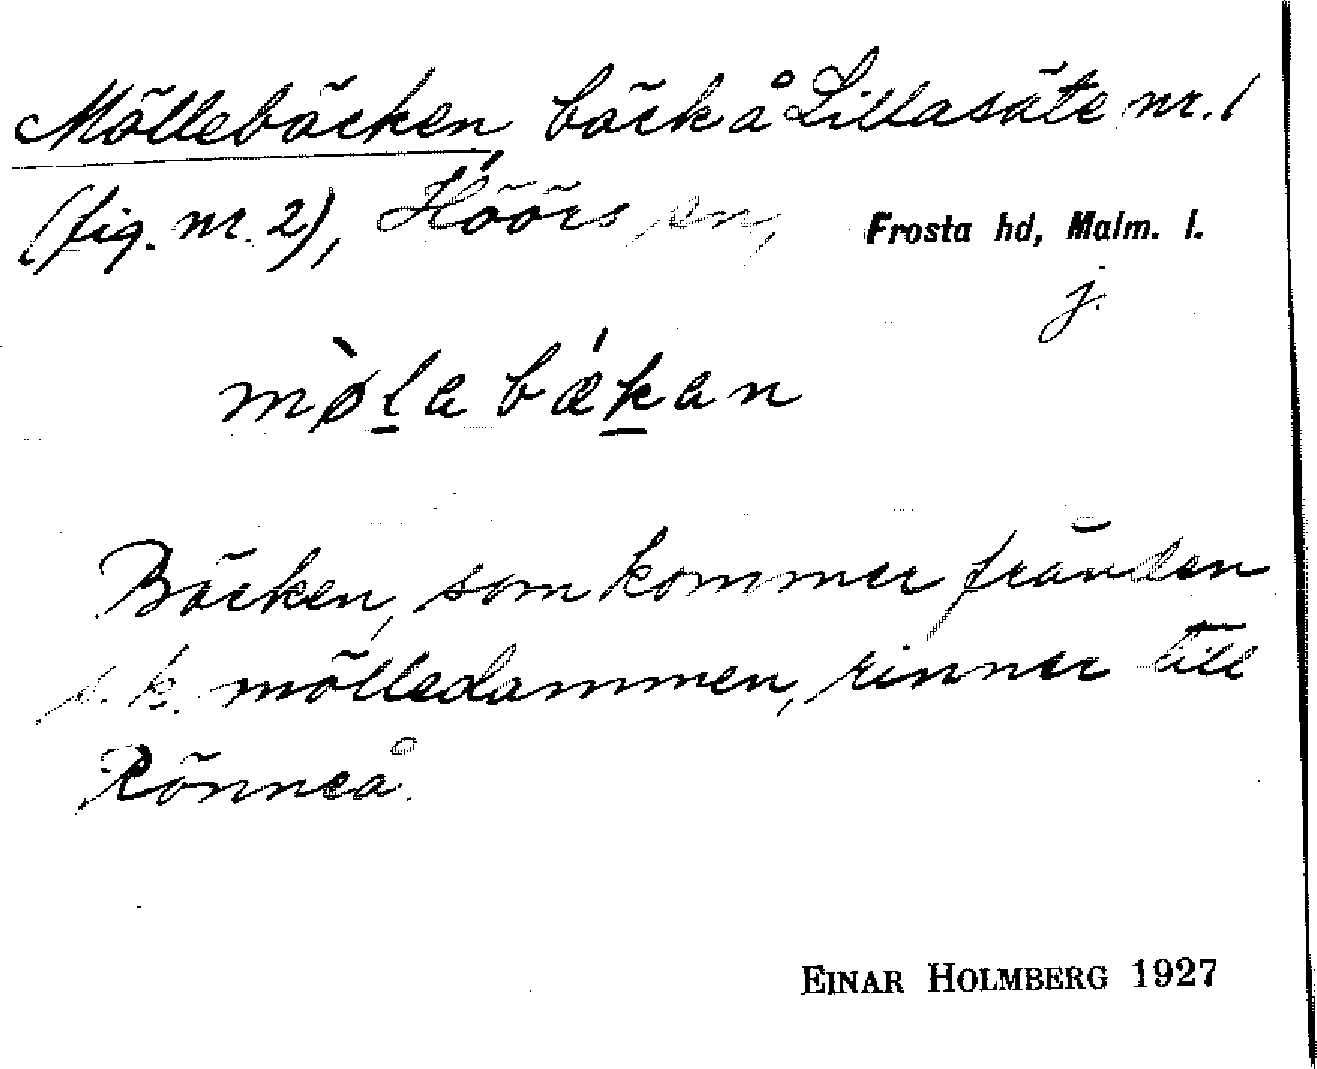 Möllebäcken, bäck å Lillasäte nr. 1
(fig. nr. 2), Höörs sn, Frosta hd, Malm. l.
j.
mø̀la bǽkan
Bäcken, som kommer från den
s.k. mölledammen, rinner till
Rönneå.
EINAR HOLMBERG 1927